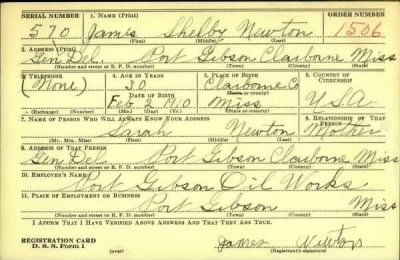 SERIAL NUMBER 1. NAME (Print) ORDER NUMBER
570 James Shelby Newton 1506
(First) (Middle) (Last)
2. ADDRESS (Print)
Gen Del. Port Gibson Claiborne Miss
(Number and street or R. F. D. number) (Town) (County) (State)
3. TELEPHONE 4. AGE IN YEARS 5. PLACE OF BIRTH 6. COUNTRY OF CITIZENSHIP
(None) 30 Claiborne Co
DATE OF BIRTH (Town or county)
Feb 2 1910 Miss U.S.A
(Exchange) (Number) (Mo.) (Day) (Yr.) (State or country)
7. NAME OF PERSON WHO WILL ALWAYS KNOW YOUR ADDRESS 8. RELATIONSHIP OF THAT PERSON
Sarah Newton Mother
(Mr., Mrs., Miss) (First) (Middle) (Last)
9. ADDRESS OF THAT PERSON
Gen Del Port Gibson Claiborne Miss
(Number and street or R. F. D. number) (Town) (County) (State)
10. EMPLOYER'S NAME
Port Gibson Oil Works
11. PLACE OF EMPLOYMENT OR BUSINESS
Port Gibson Miss
(Number and street or R. F. D. number) (Town) (County) (State)
I AFFIRM THAT I HAVE VERIFIED ABOVE ANSWERS AND THAT THEY ARE TRUE.
REGISTRATION CARD James Newton
D. S. S. Form 1 (over) (Registrant's signature)